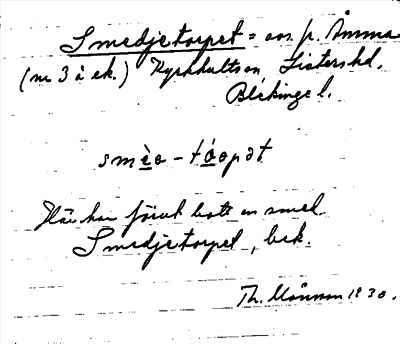 Smedjetorpet = avs. p.
(nr 3 å ek.) Kyrkhults sn, Listers hd,
Blekinge l.
smèa - tåapət
Här har förut bott en smed.
Smedjetorpet, bek.
Th. Månsson 1930.